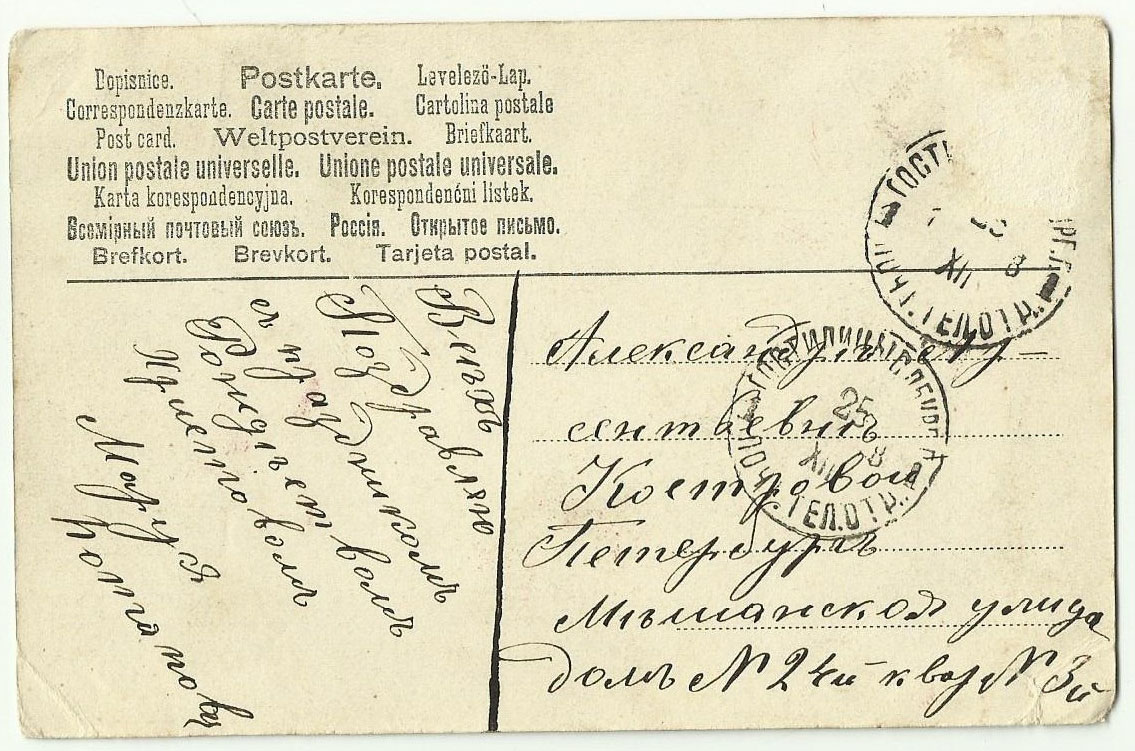 Dopisnice. Postkarte. Levelező-Lap.
Correspondenzkarte. Carte postale. Cartolina postale
Post card. Weltpostverein. Briefkaart.
Union postale universelle. Unione postale universale.
Karta korespondencyjna. Korespondenčni listek.
Всемірный почтовый союзъ. Россія. Открытое письмо.
Brefkort. Brevkort. Tarjeta postal.
Всѣхъ
Поздравляю
съ праздникомъ
Рождествомъ
Христовомъ
Маруся
Потапова
Александрѣ
Костровой
Петербургъ
Мѣшанская улица
домъ N 24й квар N 3й
ПОЧТ. ТЕЛ. ОТД.
XII 8
25
XII 8
ТЕЛ. ОТД.